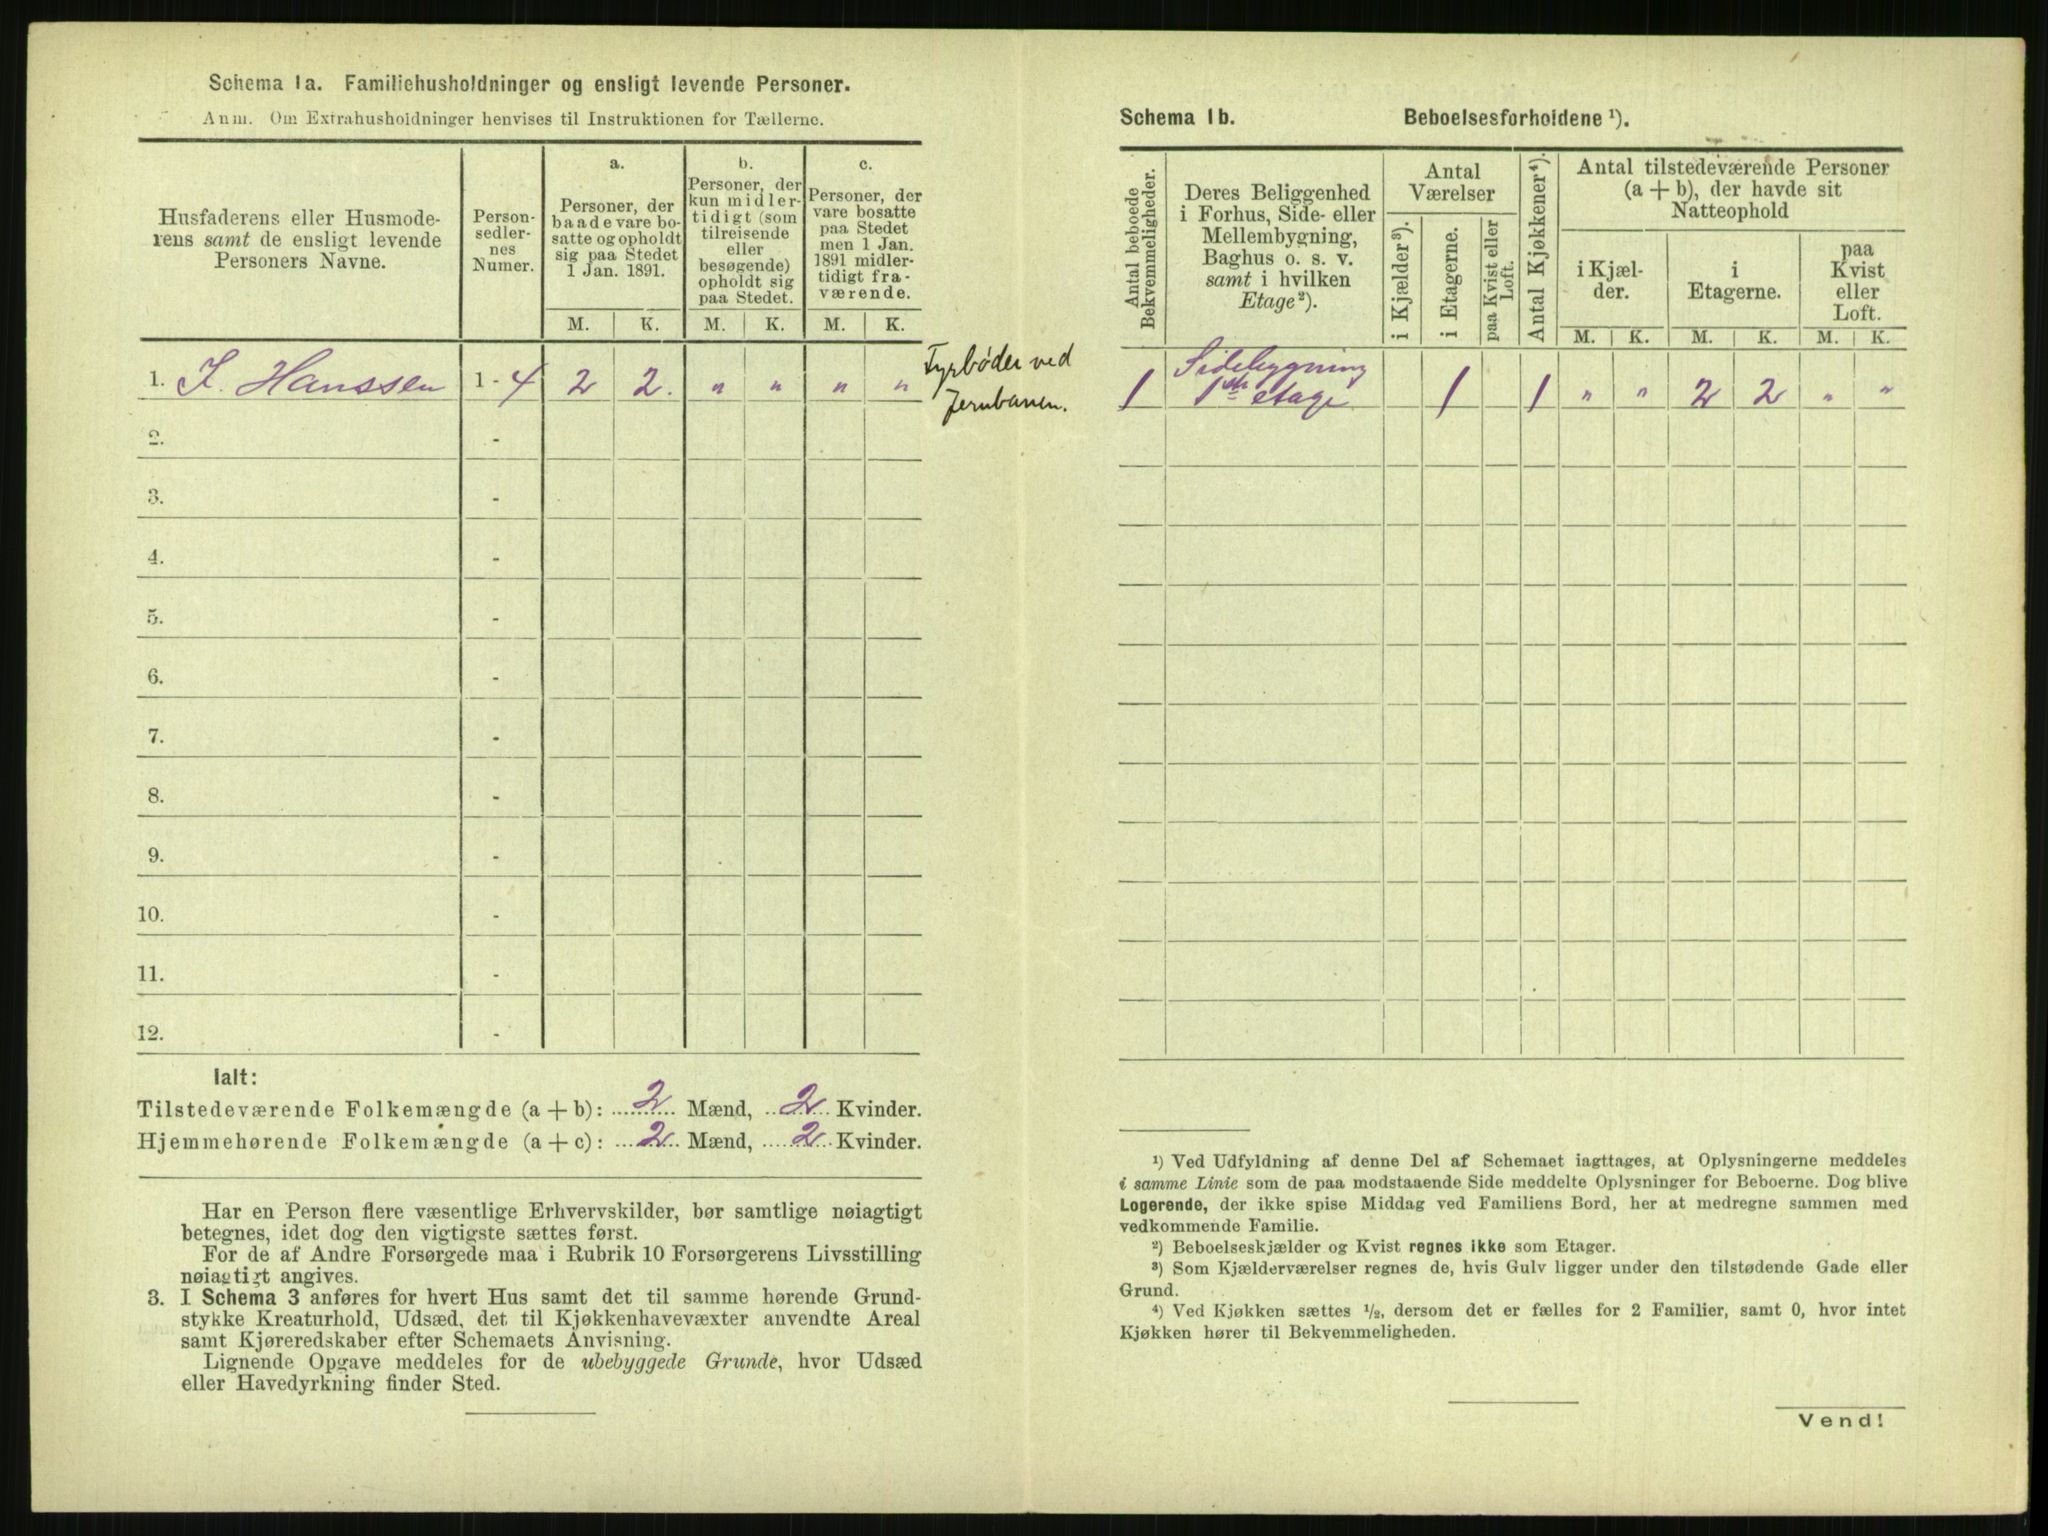 Schema 1a. Familiehusholdninger og ensligt levende Personer.
Anm. Om Extrahusholdninger henvises til Instruktionen for Tællerne.
Husfaderens eller Husmode-
rens samt de ensligt levende
Personers Navne.
Person-
sedler-
nes
Numer.
a.
Personer, der
baade vare bo-
satte og opholdt
sig paa Stedet
1 Jan. 1891.
b.
Personer, der
kun midler-
tidigt (som
tilreisende
eller
besøgende)
opholdt sig
paa Stedet.
c.
Personer, der
vare bosatte
paa Stedet
men 1 Jan.
1891 midler-
tidigt fra-
værende.
M. K. M. K. M. K.
1. I. Hanssen 1 - 4 2 2. " " " "
Fyrbøder ved
Jernbanen.
2. -
3. -
4. -
5. -
6. -
7. -
8. -
9. -
10. -
11. -
12. -
Ialt:
Tilstedeværende Folkemængde (a + b): 2 Mænd, 2 Kvinder.
Hjemmehørende Folkemængde (a + c): 2 Mænd, 2 Kvinder.
Har en Person flere væsentlige Erhvervskilder, bør samtlige nøiagtigt
betegnes, idet dog den vigtigste sættes først.
For de af Andre Forsørgede maa i Rubrik 10 Forsørgerens Livsstilling
nøiagtigt angives.
3. I Schema 3 anføres for hvert Hus samt det til samme hørende Grund-
stykke Kreaturhold, Udsæd, det til Kjøkkenhavevæxter anvendte Areal
samt Kjøreredskaber efter Schemaets Anvisning.
Lignende Opgave meddeles for de ubebyggede Grunde, hvor Udsæd
eller Havedyrkning finder Sted.
Schema 1b. Beboelsesforholdene ¹).
Antal beboede
Bekvemmeligheder.
Deres Beliggenhed
i Forhus, Side- eller
Mellembygning,
Baghus o. s. v.
samt i hvilken
Etage ²).
Antal
Værelser
i Kjælder ³).
i Etagerne.
paa Kvist eller
Loft.
Antal Kjøkkener ⁴).
Antal tilstedeværende Personer
(a + b), der havde sit
Natteophold
i Kjæl-
der.
i
Etagerne.
paa
Kvist
eller
Loft.
M. K. M. K. M. K.
Sidebygning
1 1ste etage 1 1 " " 2 2 " "
¹) Ved Udfyldning af denne Del af Schemaet iagttages, at Oplysningerne meddeles
i samme Linie som de paa modstaaende Side meddelte Oplysninger for Beboerne. Dog blive
Logerende, der ikke spise Middag ved Familiens Bord, her at medregne sammen med
vedkommende Familie.
²) Beboelseskjælder og Kvist regnes ikke som Etager.
³) Som Kjælderværelser regnes de, hvis Gulv ligger under den tilstødende Gade eller
Grund.
⁴) Ved Kjøkken sættes ½, dersom det er fælles for 2 Familier, samt 0, hvor intet
Kjøkken hører til Bekvemmeligheden.
Vend!